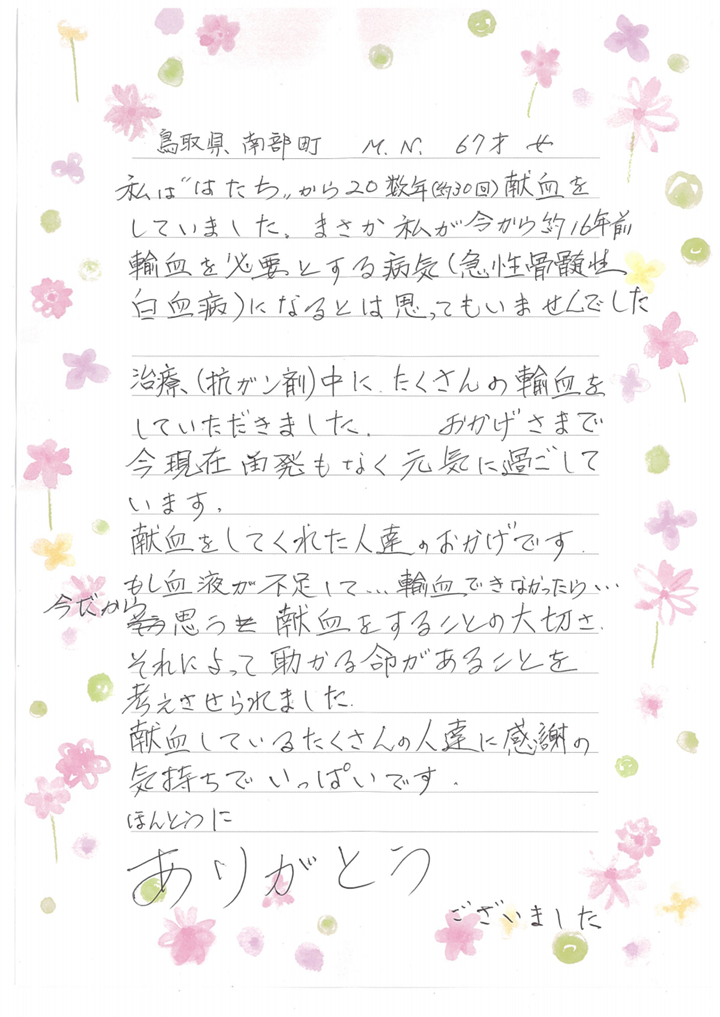 鳥取県 南部町 M.N. 67才 女
私は"はたち"から20数年(約30回)献血を
していました。まさか私が今から約16年前
輸血を必要とする病気(急性骨髄性
白血病)になるとは思ってもいませんでした
治療(抗ガン剤)中に たくさんの輸血を
していただきました. おかげさまで
今現在 再発もなく元気に過ごして
います.
献血をしてくれた人達のおかげです.
もし血液が不足して…輸血できなかったら…
今だから思う 献血をすることの大切さ.
それによって助かる命があることを
考えさせられました.
献血しているたくさんの人達に感謝の
気持ちでいっぱいです.
ほんとうに
ありがとう
ございました